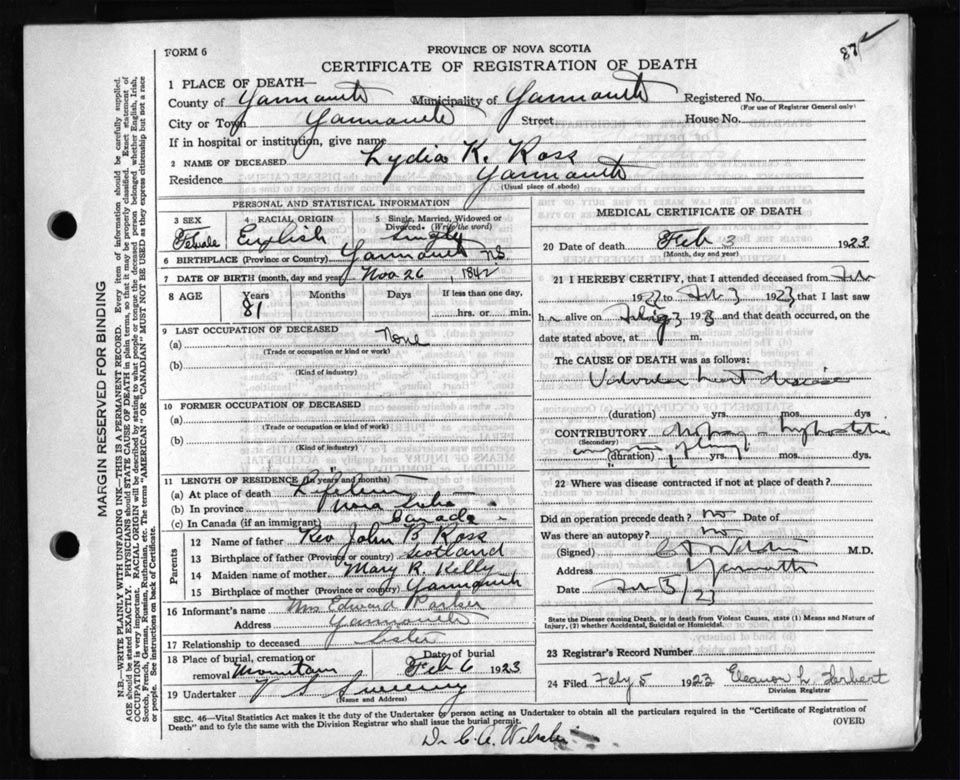 87
FORM 6
PROVINCE OF NOVA SCOTIA
CERTIFICATE OF REGISTRATION OF DEATH
1 PLACE OF DEATH—
County of Yarmouth Municipality of Yarmouth Registered No.
(For use of Registrar General only)
City or Town Yarmouth Street House No.
If in hospital or institution, give name
2 NAME OF DECEASED Lydia K. Ross
Residence Yarmouth
(Usual place of abode)
PERSONAL AND STATISTICAL INFORMATION
3 SEX 4 RACIAL ORIGIN 5 Single, Married, Widowed or Divorced (Write the word)
Female English Single
6 BIRTHPLACE (Province or Country) Yarmouth N.S.
7 DATE OF BIRTH (month, day and year) Nov 26, 1842
8 AGE Years Months Days If less than one day,
81 hrs. or min.
9 LAST OCCUPATION OF DECEASED
(a) None
(Trade or occupation or kind or work)
(b)
(Kind of industry)
10 FORMER OCCUPATION OF DECEASED
(a)
(Trade or occupation or kind of work)
(b)
(Kind of industry)
11 LENGTH OF RESIDENCE (in years and months)
(a) At place of death
(b) In province Nova Scotia
(c) In Canada (if an immigrant) Canada
Parents
12 Name of father Rev John B Ross
13 Birthplace of father (Province or country) Scotland
14 Maiden name of mother Mary R. Kelly
15 Birthplace of mother (Province or country) Yarmouth
16 Informant's name Mrs Edward Parker
Address Yarmouth
17 Relationship to deceased Sister
18 Place of burial, cremation or removal Mountain Date of burial Feb 6 1923
19 Undertaker V S Sweeny
(Name and Address)
MEDICAL CERTIFICATE OF DEATH
20 Date of death Feb 3 1923
(Month, day and year)
21 I HEREBY CERTIFY, that I attended deceased from
192 to Feb 3 1923 that I last saw
h alive on 3 19 and that death occurred, on
date stated above, at m.
The CAUSE OF DEATH was as follows:
Valvular heart disease
(duration) yrs. mos. dys
CONTRIBUTORY hypostatic
(Secondary)
(duration) yrs. mos. dys.
22 Where was disease contracted if not at place of death?
Did an operation precede death? no Date of
Was there an autopsy? no
(Signed) M.D.
Address Yarmouth
Date Feb 3/23
State the Disease causing Death, or in death from Violent Causes, state (1) Means and Nature of Injury, (2) whether Accidental, Suicidal or Homicidal.
23 Registrar's Record Number
24 Filed Feby 5 1923 Eleanor L.
Division Registrar
SEC. 46—Vital Statistics Act makes it the duty of the Undertaker or person acting as Undertaker to obtain all the particulars required in the "Certificate of Registration of
Death" and to fyle the same with the Division Registrar who shall issue the burial permit.
(OVER)
Dr. C. A. Webster
MARGIN RESERVED FOR BINDING
N.B.—WRITE PLAINLY WITH UNFADING INK—THIS IS A PERMANENT RECORD. Every item of information should be carefully supplied.
AGE should be stated EXACTLY. PHYSICIANS should STATE CAUSE OF DEATH in plain terms, so that it may be properly classified. Exact statement of
OCCUPATION is very important. RACIAL ORIGIN will be described by stating to what people or tongue the deceased person belonged whether English, Irish,
Scotch, French, German, Russian, Ruthenian, etc. The terms "AMERICAN" OR "CANADIAN" MUST NOT BE USED as they express citizenship but not a race
or people. See instructions on back of Certificate.